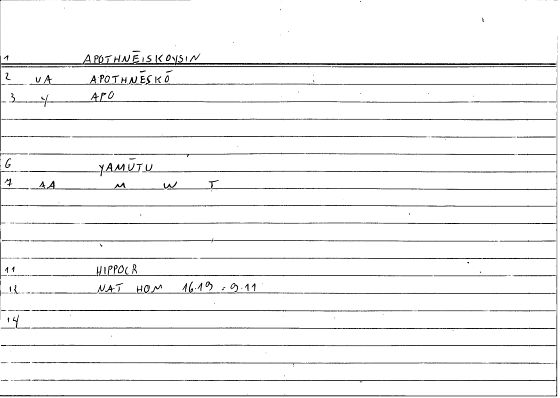 1 APOTHNĒISKOYSIN
2 VA APOTHNĒSKŌ
3 Y APO
6 YAMŪTU
7 AA M W T
11 HIPPOCR
12 NAT HOM 16.19 = 9.11
14